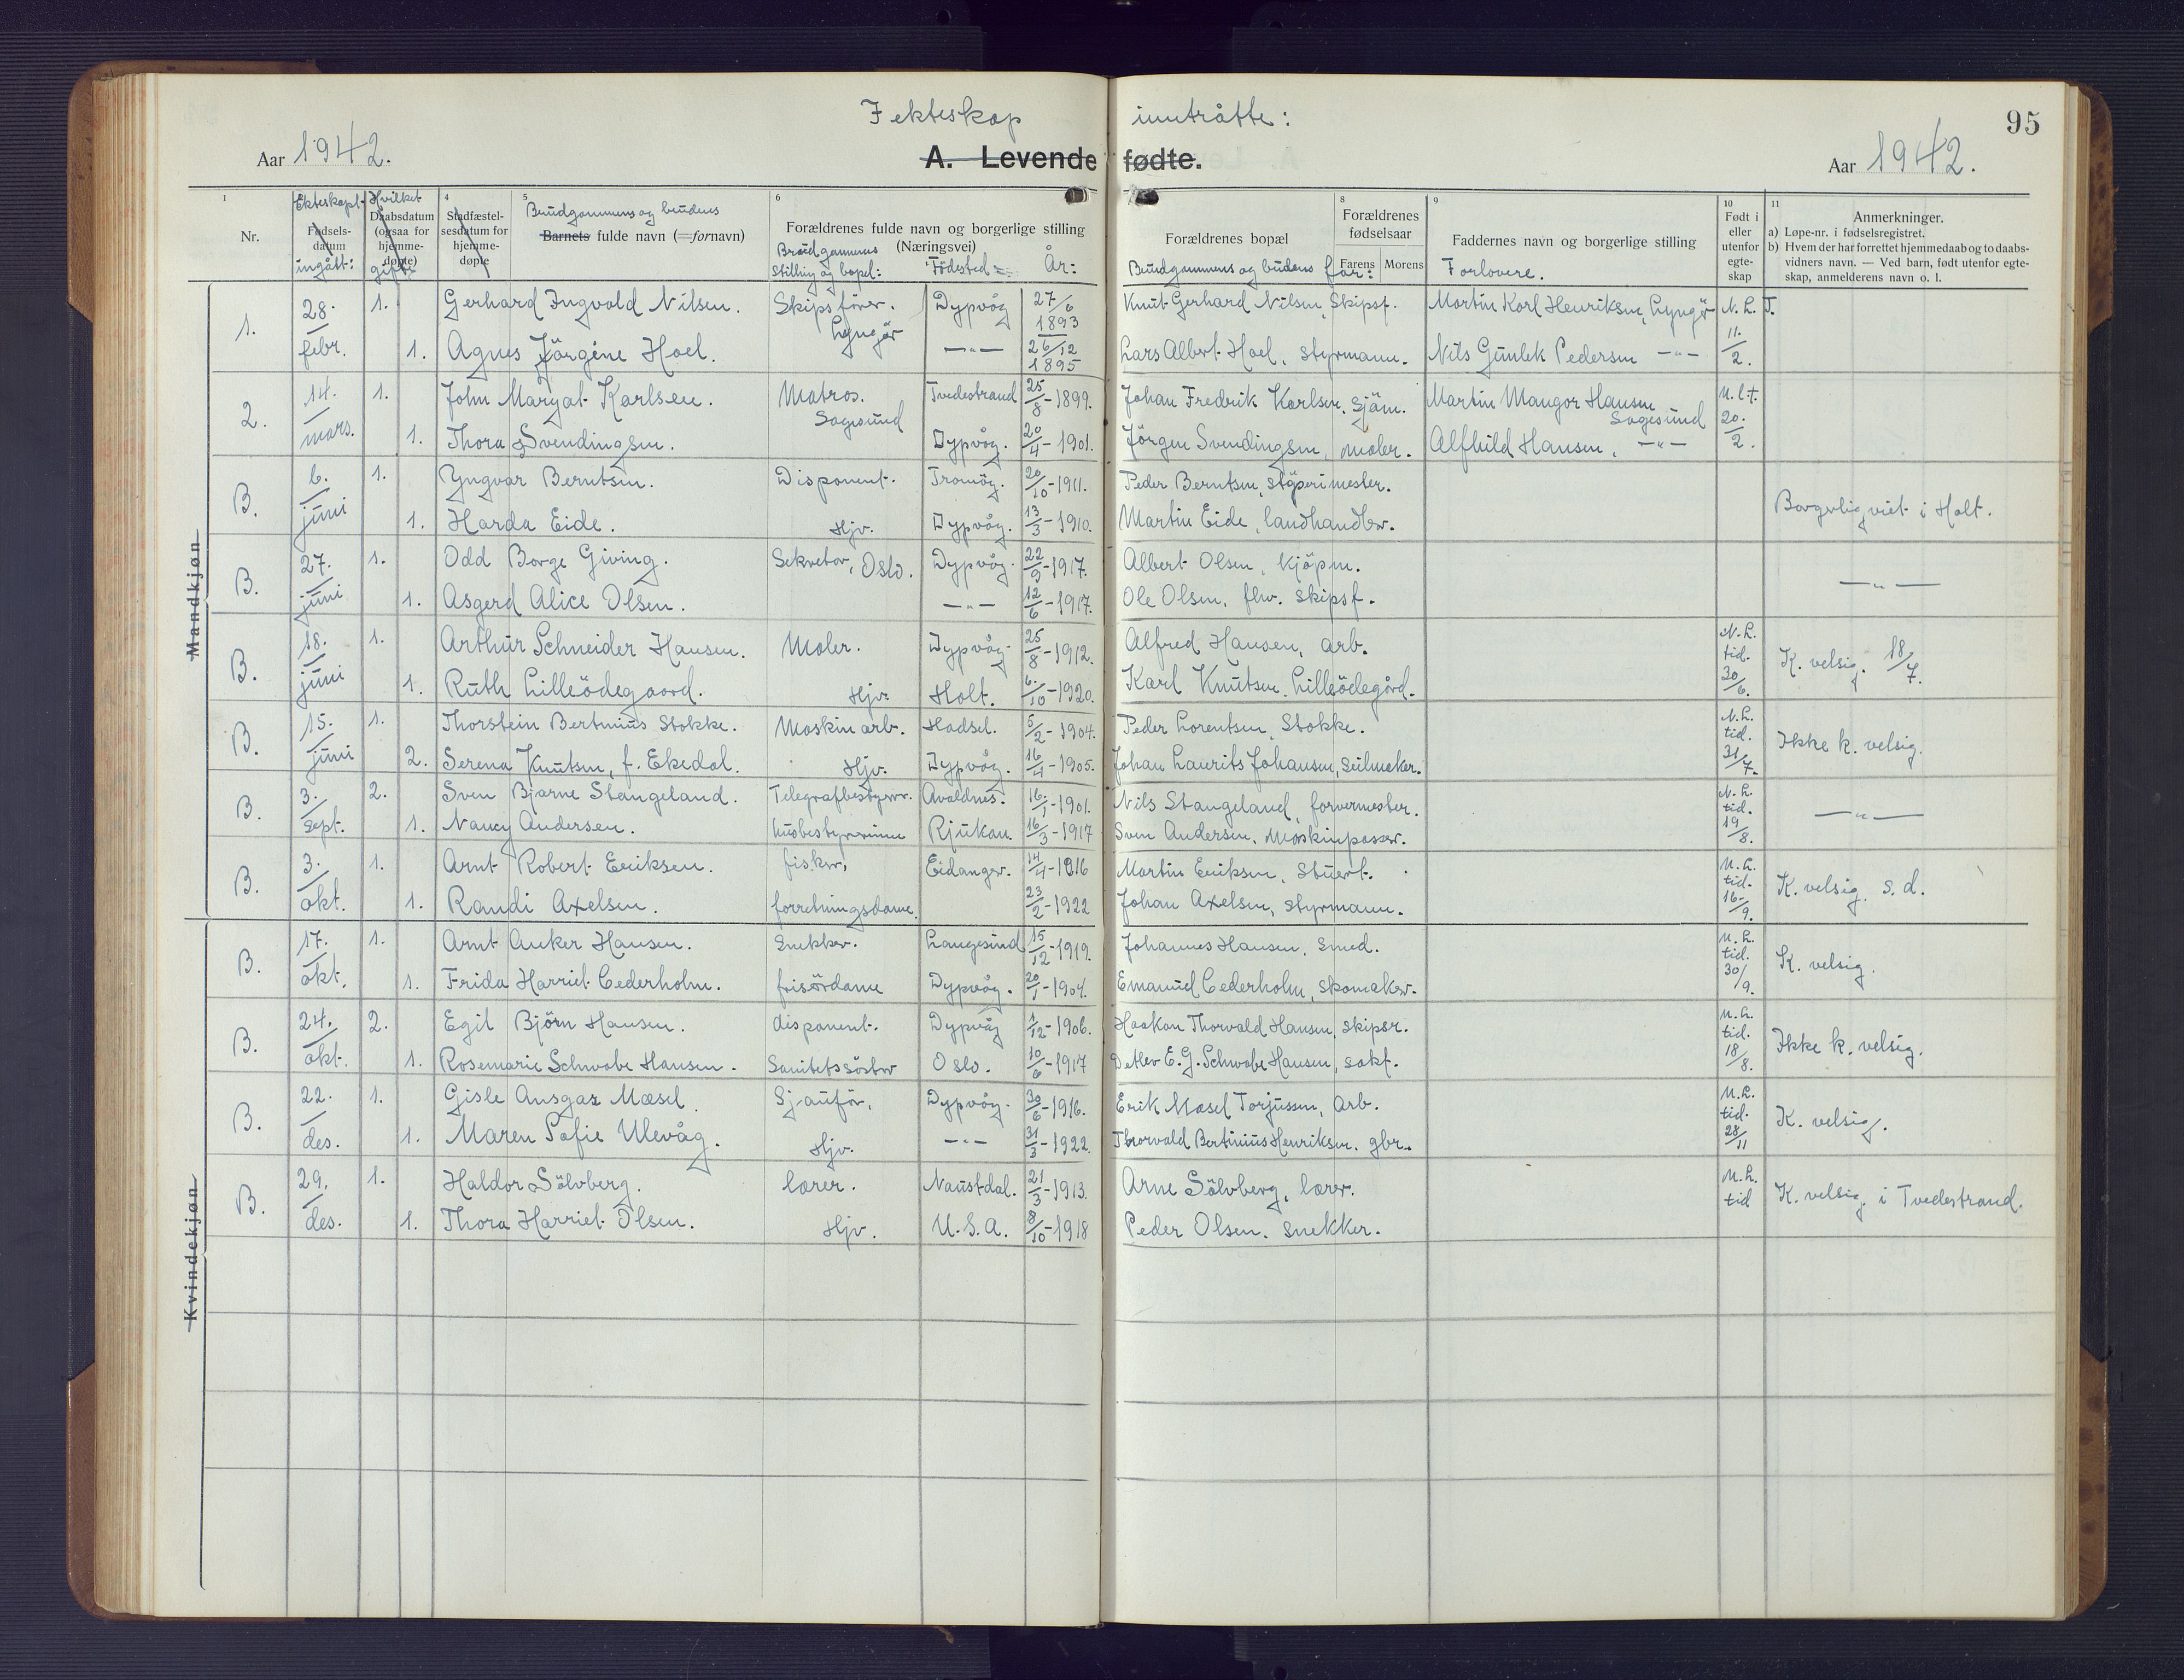 I ekteskap inntrådte:
95
Aar 1942.
A. Levende fødte.
Aar 1942.
1 Nr.
Ekteskapt- Fødselsdatum ingått:
Hvilket Daabsdatum (ogsaa for hjemmedøpte) gifte
4 Stadfæstelsesdatum for hjemmedøpte
5 Brudgommens og brudens Barnets fulde navn (= fornavn)
6 Forældrenes fulde navn og borgerlige stilling (Næringsvei)
Brudgommens Stilling og bopel: Födested År:
Forældrenes bopæl
Brudgommens og brudens far:
8 Forældrenes fødselsaar Farens Morens
9 Faddernes navn og borgerlige stilling
Forlovere.
10 Født i eller utenfor egteskap
11 Anmerkninger.
a) Løpe-nr. i fødselsregistret.
b) Hvem der har forrettet hjemmedaab og to daabsvidners navn. — Ved barn, født utenfor egteskap, anmelderens navn o. l.
Mandkjøn
1. 28. febr. 1. Gerhard Ingvald Nilsen. Skipsförer. Lyngör Dypvåg 27/6 1893 Knut Gerhard Nilsen, Skipsf. Martin Karl Henriksen, Lyngör N. L. T. 11/2
1. Agnes Jörgine Hoel. —"— 26/12 1895 Lars Albert Hoel, styrmann. Nils Gunlek Pedersen —"—
2. 14. mars. 1. John Margat Karlsen. Matros. Sagesund Tvedestrand 25/8-1899. Johan Fredrik Karlsen, sjäm. Martin Mangor Hansen Sagesund N. l. t. 20./2.
1. Thora Svendingsen. Dypvåg. 20/4-1901. Jörgen Svendingsen, maler. Alfhild Hansen, —"—
B. 6. juni 1. Yngvar Berntsen. Disponent. Tromöy. 20/10-1911. Peder Berntsen, stöperimester. Borgerlig viet i Holt.
1. Harda Eide. Hjv. Dypvåg. 13/3-1910. Martin Eide, landhandler.
B. 27. juni 1. Odd Borge Giving. Sekretær, Oslo. Dypvåg. 22/9-1917. Albert Olsen, kjöpm. —"—
1. Asgerd Alice Olsen. —"— 12/6-1917. Ole Olsen, fhv. skipsf.
B. 18. juni 1. Arthur Schneider Hansen. Maler. Dypvåg. 25/8-1912. Alfred Hansen, arb. N. L. tid. 20/6. K. velsig. 18/7.
1. Ruth Lilleödegaard. Hjv. Holt. 6./10-1920. Karl Knutsen Lilleödegård.
B. 15. juni 1. Thorstein Bertinius Stokke. Maskinarb. Hadsel. 5/2-1904. Peder Lorentsen Stokke. N. L. tid. 31/7. Ikke k. velsig.
2. Serena Knutsen, f. Ekedal. Hjv. Dypvåg. 16/4-1905. Johan Laurits Johansen, seilmeker.
B. 3. sept. 2. Sven Bjarne Stangeland. Telegrafbestyrer. Avaldnes. 16/1-1901. Nils Stangeland, farvermester. N. L. tid. 19/8. —"—
1. Nancy Andersen. husbestyrerinne Rjukan. 16/3-1917 Sven Andersen, maskinpasser.
B. 3. okt. 1. Arnt Robert Eriksen. fisker, Eidanger. 14/4-1916 Martin Eriksen, stuert. N. L. tid. 16/9. K. velsig. s. d.
1. Randi Axelsen. forretningsdame. 23/2-1922 Johan Axelsen, styrmann.
Kvindekjøn
B. 17. okt. 1. Arnt Anker Hansen. Snekker. Langesund 15/12-1919. Johannes Hansen, smed. N. L. tid. 30/9. K. velsig.
1. Frida Harriet Cederholm. frisördame Dypvåg. 20/1-1904. Emanuel Cederholm, skomaker.
B. 24. okt. 2. Egil Björn Hansen. disponent. Dypvåg 1/12-1906. Haakon Thorvald Hansen, skipsr. N. L. tid. 18/8. Ikke k. velsig.
1. Rosemarie Schwabe Hansen. Sanitetssöster Oslo. 10/6-1917 Detlev E. G. Schwabe Hansen, sakf.
B. 22. des. 1. Gisle Ansgar Mæsel. Sjauför. Dypvåg. 30/6-1916. Erik Mæsel Torjussen, arb. N. L. tid. 28/11 K. velsig.
1. Maren Sofie Ulevåg. Hjv. —"— 31/3-1922. Thorvald Bertinius Henriksen, gbr.
B. 29. des. 1. Haldor Sölvberg. lærer. Naustdal. 21/3-1913. Arne Sölvberg, lærer. N. L. tid K. velsig. i Tvedestrand.
1. Thora Harriet Olsen. Hjv. U. S. A. 8/10-1918 Peder Olsen, snekker.